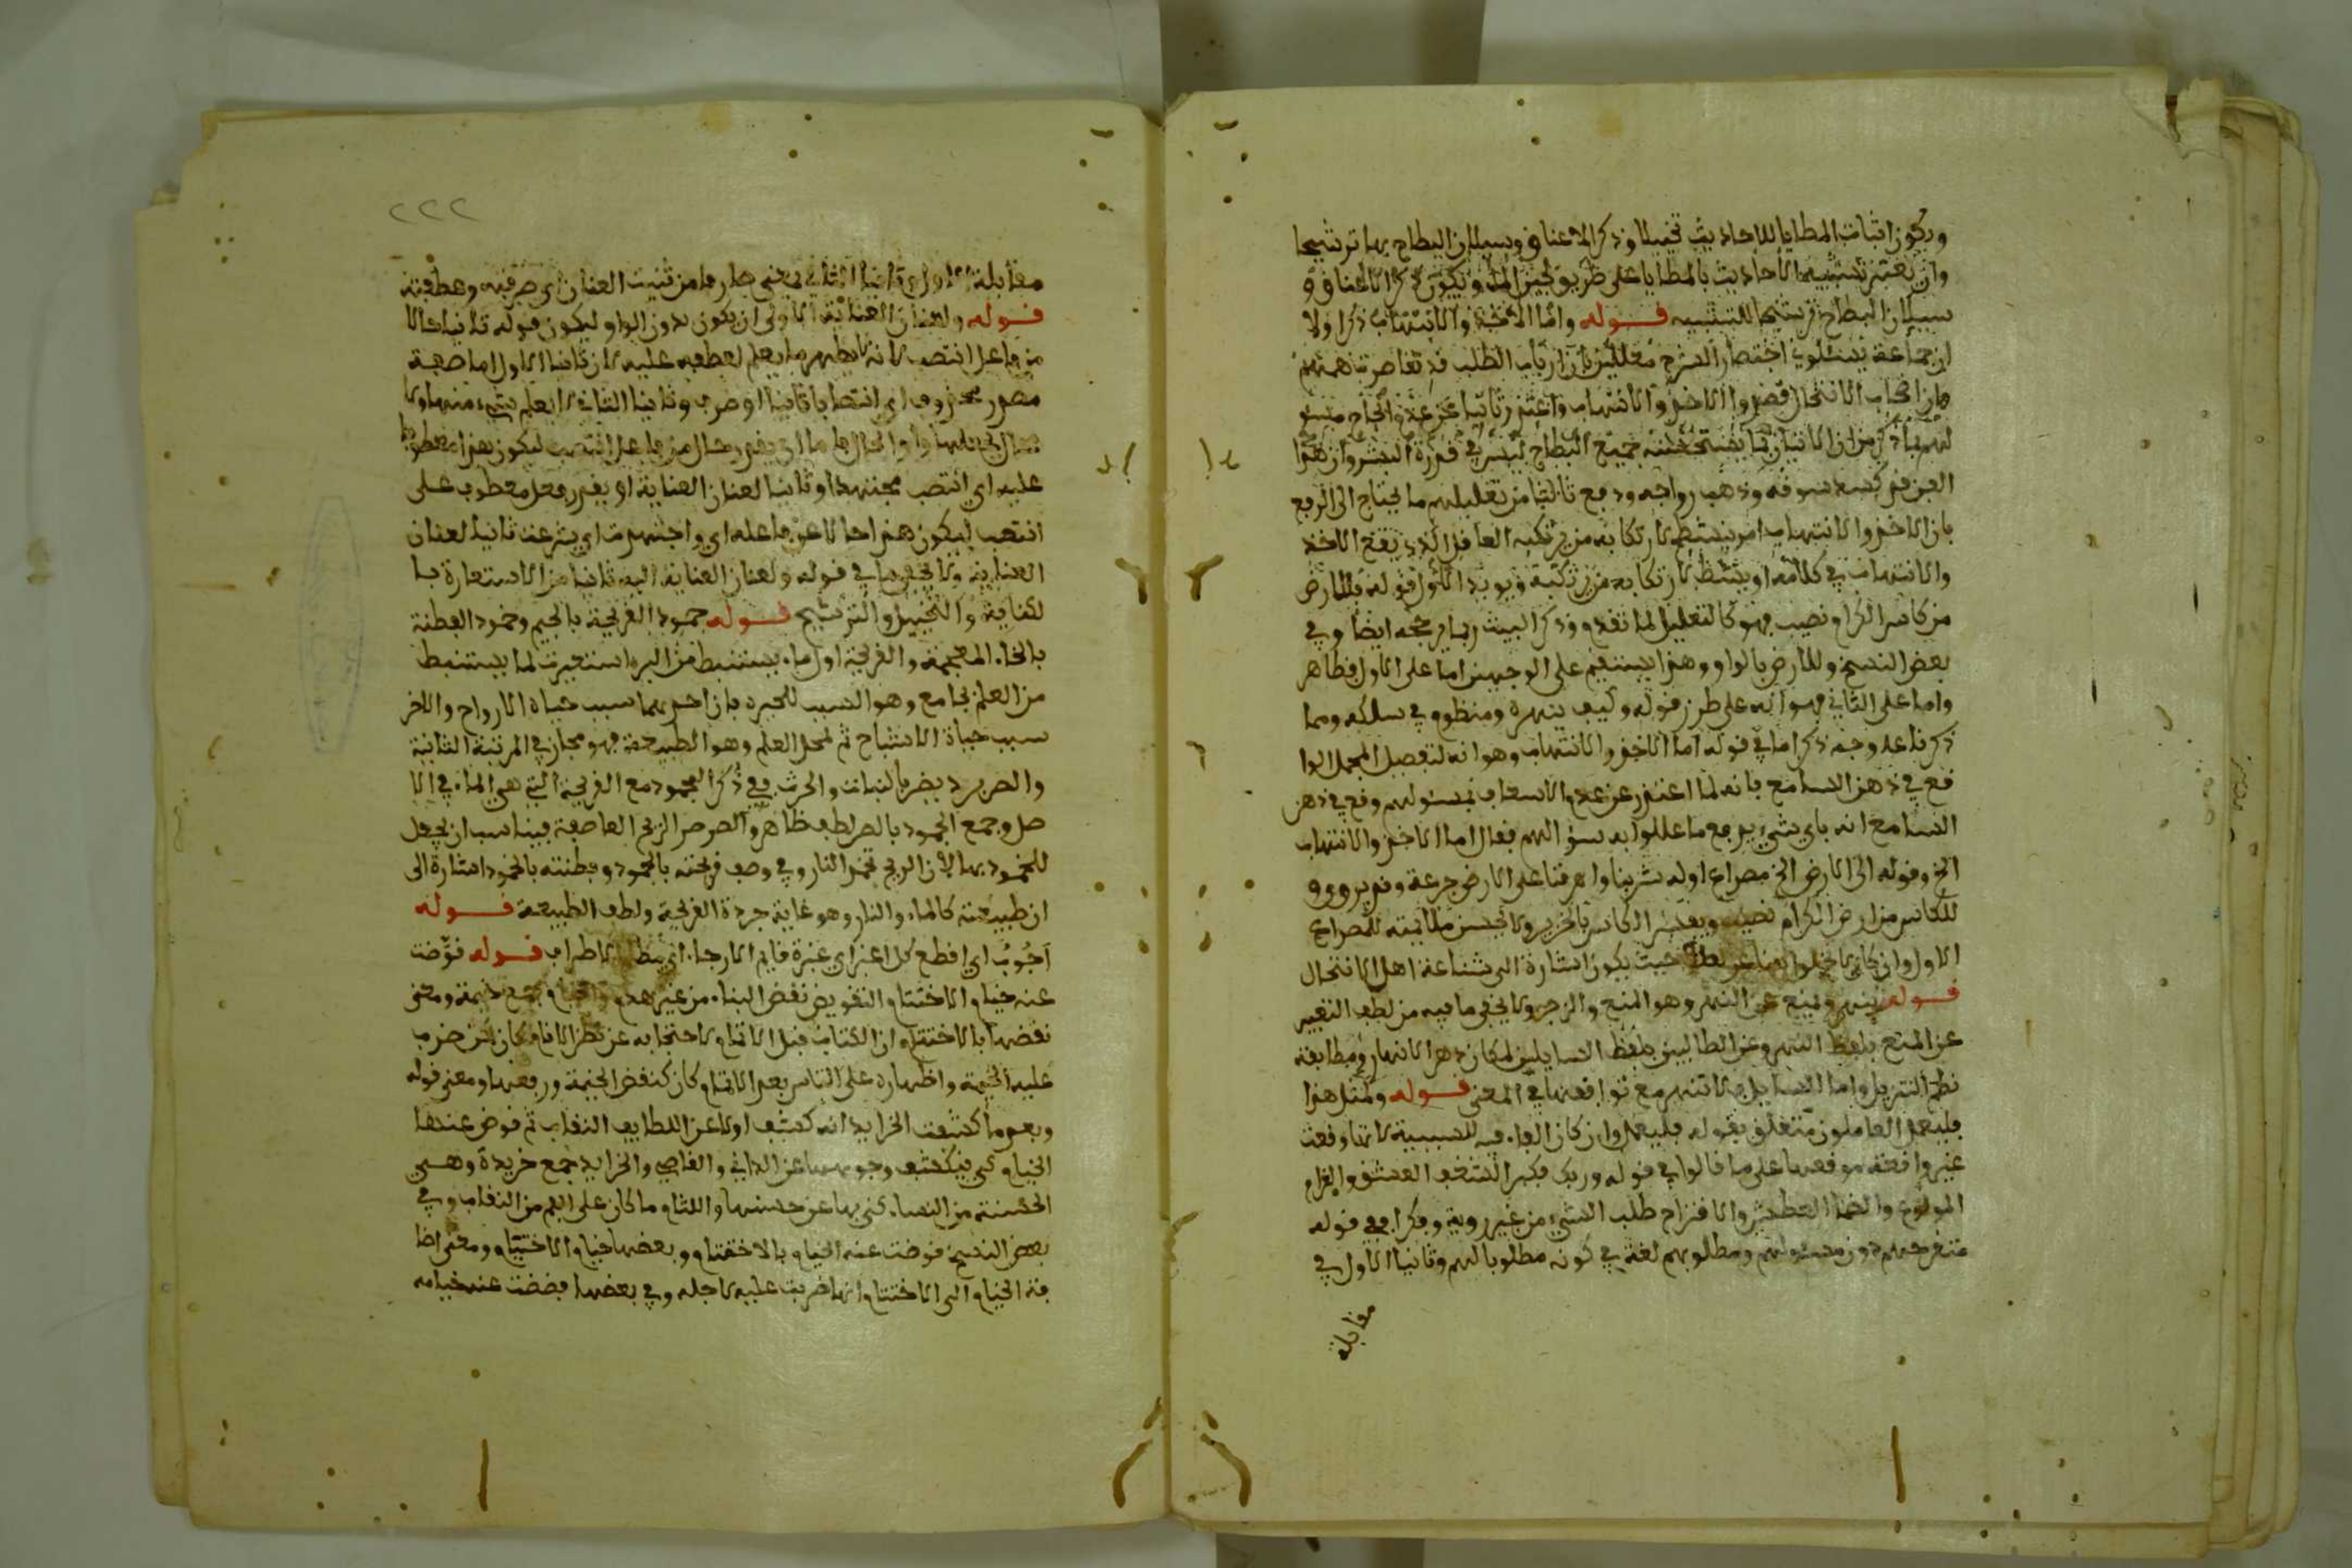 ويكون اثبات المطايا للاحاديث تخييلا وذكر الاعناق وسيلان البطاح بها ترشيحا
وان يعتبر تشبيه الاحاديث بالمطايا على طريق لجين الماء ويكون ذكر الاعناق و
سيلان البطاح ترشيحا للتشبيه قوله واما الاخذ والانتهاب ذكر اولا
ان جماعة يسئلوني اختصار الشرح معللين بان ارباب الطلب قد تقاصرت هممهم
وان اصحاب الانتحال قصروا الاخذ والانتهاب واعتذر ثانيا عن عدم انجاح مسئو
لهم بما ذكر من ان الاتيان بما يستحسنه جميع الطباع ليس في قدرة البشر وان هذا
الفن قد كسد سوقه وذهب رواجه ودفع ثالثا من تعليلهم ما يحتاج الى الدفع
بان الاخذ والانتهاب امر ينشط لارتكابه من يرتكبه العاقل الذي يقبح الاخذ
والانتهاب في كلامه او ينشط لارتكابه من يرتكبه ويويد الاول قوله فللارض
من كاس الكرام نصيب فهو كالتعليل لما تقدم وذكر البيت ربما يرجحه ايضا وفي
بعض النسخ وللارض بالواو وهذا يستقيم على الوجهين اما على الاول فظاهر
واما على الثاني فهو انه على طرز قوله وكيف ينهره ومنظوم في سلكه ومما
ذكرنا علم وجه ذكر اما في قوله اما الاخذ والانتهاب وهو انه لتفصيل المجمل الوا
قع في ذهن السامع بانه لما اعتذر عن عدم الاسعاف بمسئولهم وقع في ذهن
السامع انه باي شيء يدفع ما عللوا به سؤالهم فقال اما الاخذ والانتهاب
الخ وقوله الى الارض الخ مصراع اوله شربنا واهرقنا على الارض جرعة وقد يروى و
للكاس من ارض الكرام نصيب ويفسر الكاس بالخزير ولا يحسن ملايمته للمصراع
الاول وان كان لا يخلوا حيث يكون اشارة الى شناعة اهل الانتحال
قوله ينهر ويمنع عن النهر وهو المنع والزجر ولا يخفى ما فيه من لطف التعبير
عن المنع بلفظ النهر وعن الطالبين بلفظ السايلين لمكان دهر الانهار ومطابقة
نظم التنزيل واما السايل فلا تنهر مع توافقهما في المعنى قوله ولمثل هذا
فليعمل العاملون متعلق بقوله فليعمل وان كان الفاء فيه للسببية لانها وقعت
غير واقعة موقعها على ما قالوا في قوله وربك فكبر الشغف العشق والغرام
الولوع والظما العطش والاقتراح طلب الشيء من غير روية وفكر ففي قوله
مقترحهم دون مسئولهم ومطلوبهم لغة في كونه مطلوبا لهم وثانيا الاول في
مقابلة
٢٢٢
مقابلة الاول وثانيا الثاني بمعنى صارفا من ثنيت العنان اي صرفته وعطفته
قوله ولعنان العناية الاولى ان يكون بدون الواو ليكون قوله ثانيا حالا
من فاعل انتصب لانه لا يظهر ما يصلح لعطفه عليه لان ثانيا الاول اما صفة
مصدر محذوف اي انتصابا ثانيا او ظرف وثانيا الثاني لا يصلح شيء منهما ولا
عليه اي انتصب مجتهدا وثانيا لعنان العناية او يقدر فعل معطوف على
انتصب ليكون هذا حالا عن فاعله اي واجتهدت اي شرعت ثانيا لعنان
العناية ولا يخفى ما في قوله ولعنان العناية اليه ثانيا من الاستعارة با
لكناية والتخييل والترشيح قوله جمود القريحة بالجيم وخمود الفطنة
بالخاء المعجمة والقريحة اول ماء يستنبط من البير استعيرت لما يستنبط
من العلم بجامع وهو السبب للحيوة بان احدهما سبب حياة الارواح والاخر
سبب حياة الاشباح ثم لمحل العلم وهو الطبيعة فهو مجاز في المرتبة الثانية
والصر برد يضر بالنبات والحرث ففي ذكر الجمود مع القريحة التي هي الماء في الا
صل وجمع الجمود بالصر لطف ظاهر والصرصر الريح العاصفة فيناسب ان يجعل
للخمود بها لان الريح تخمد النار وفي وصف قريحته بالجمود وفطنته بالخمود اشارة الى
ان طبيعته كالماء والنار وهو غاية جودة القريحة ولطف الطبيعة قوله
اجوب اي اقطع كل اغبر اي غبرة قاتم الارجاء اي مظلم الاطراف قوله قوضت
عنه خيام الاختتام التقويض نقض البناء من غير هدم والخيام جمع خيمة ومعنى
نقضها بالاختتام ان الكتاب قبل الاتمام لاحتجابه عن نظر الانام كان كمن ضرب
عليه الخيمة واظهاره على الناس بعد الاتمام كان كنقض الخيمة ورفعها ومعنى قوله
وبعد ما كشفت الخرايد انه كشف اولا عن اللطايف النقاب ثم قوض عندها
الخيام لكي ينكشف وجوهها عن الداني والقاصي والخرايد جمع خريدة وهي
الحسنة من النساء كنى بها عن حسنها واللثام ما كان على الفم من النقاب وفي
بعض النسخ قوضت عنه الخيام بالاختتام وبعضها خيام الاختتام ومعنى اضا
فة الخيام الى الاختتام انها ضربت عليه لاجله وفي بعضها فضضت عنه ختامه